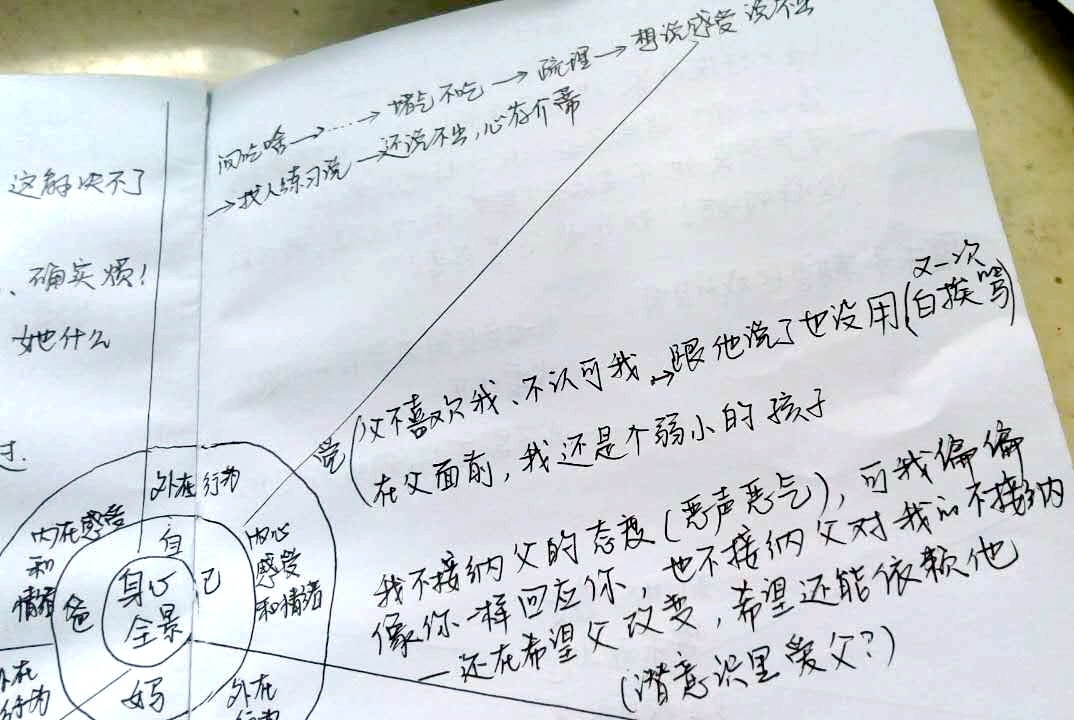 这解决不了
、确实烦!
她什么
过.
问吃啥→……→堵气不吃→疏理→想说感受说不出
→找人练习说→还说不出,心存介蒂
觉(父不喜欢我、不认可我→跟他说了也没用(又一次白挨骂)
在父面前,我还是个弱小的孩子
我不接纳父的态度(恶声恶气),可我偏偏
像你一样回应你,也不接纳父对我的不接纳
—还在希望父改变,希望还能依赖他
(潜意识里爱父?)
外在行为
内在感受
和
情绪
内心
感受
和情绪
自
己
爸
妈
身心
全景
外在
行为
外在
行为